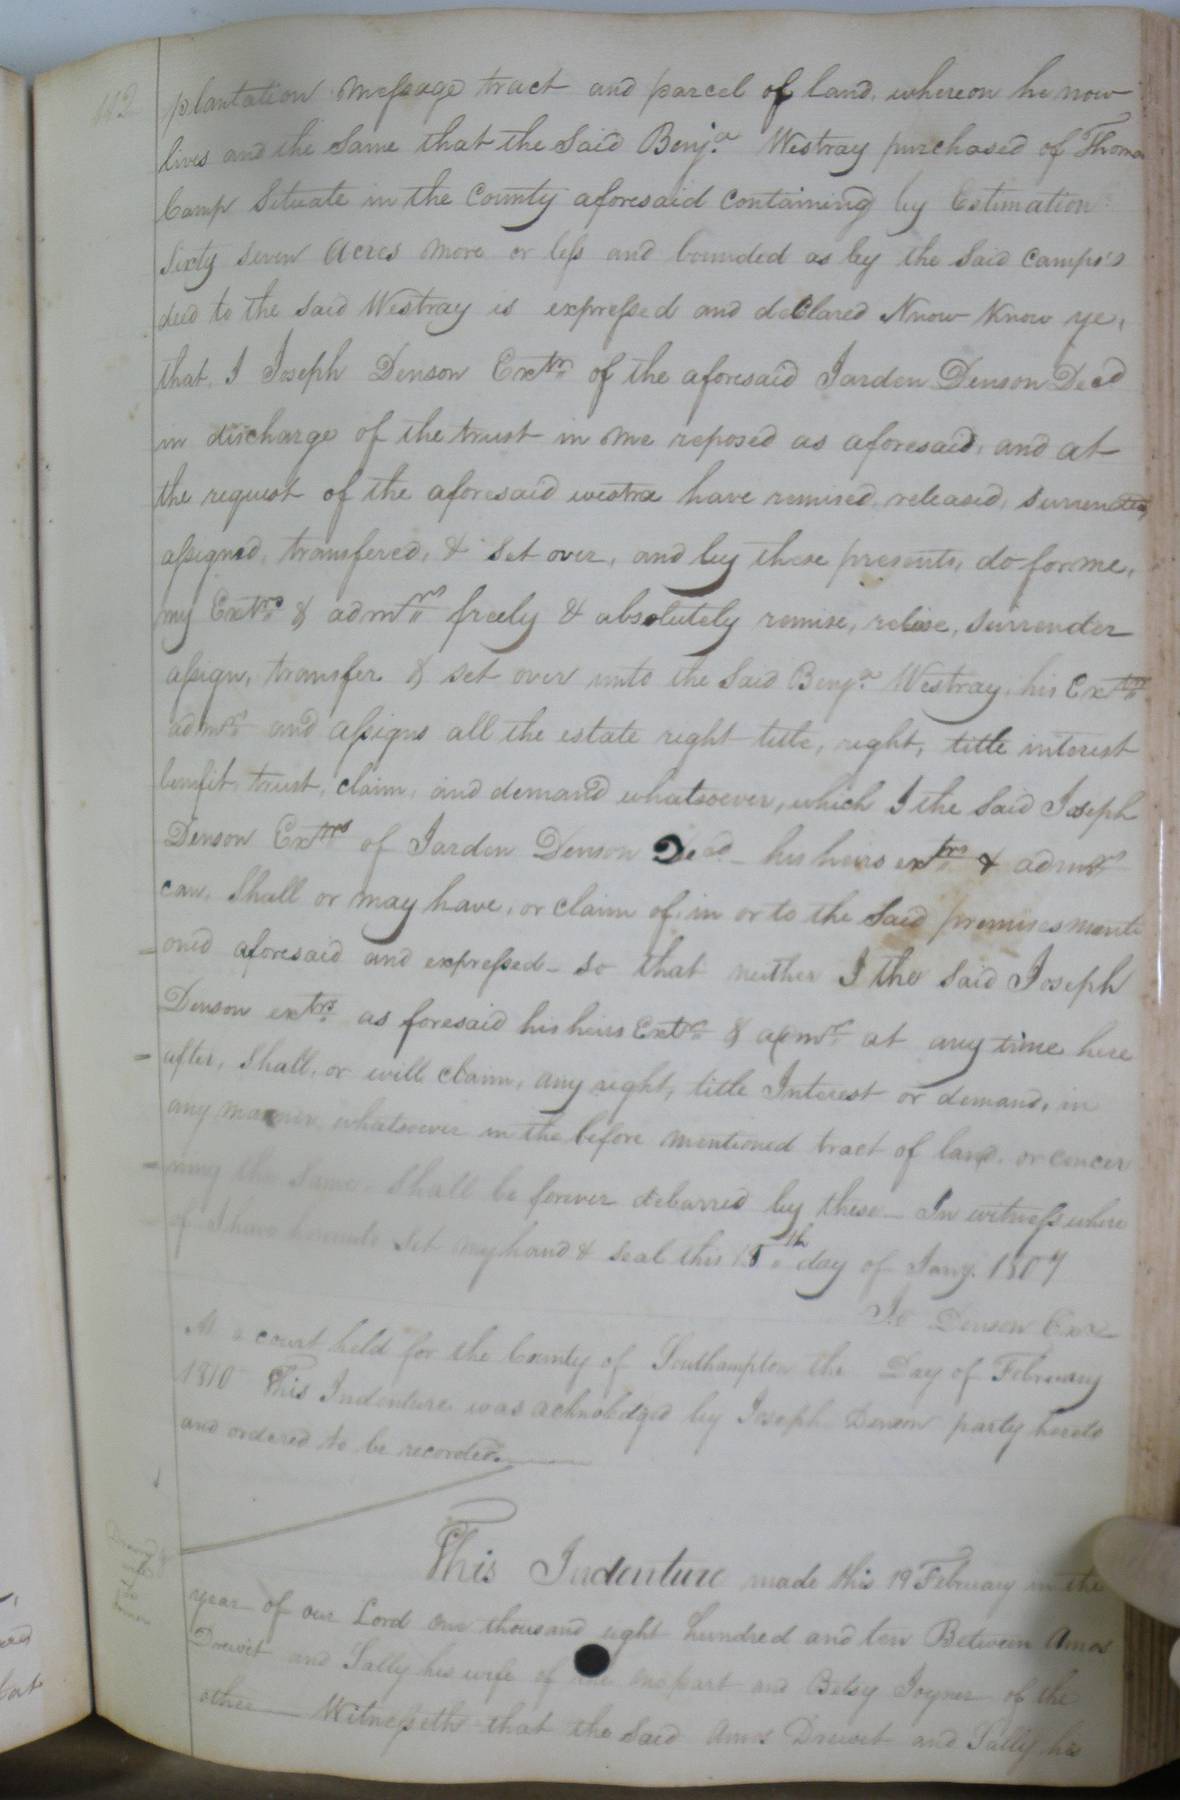 112
plantation Messuage tract and parcel of land, whereon he now
lives and the Same that the Said Benja. Westray purchased of Thomas
Camp Situate in the County aforesaid Containing by Estimation
Sixty seven Acres more or less and bounded as by the Said Camps's
deed to the Said Westray is expressed and declared Nnow Know ye,
that, I Joseph Denson Extr. of the aforesaid Jarden Denson Decd
in discharge of the trust in me reposed as aforesaid, and at
the request of the aforesaid westra have remised, released, Surrendered,
assigned, transfered, & Set over, and by these presents, do for me,
my Extrs. & admrs. freely & absolutely remise, relese, Surrender
assign, transfer & set over unto the Said Benja. Westray, his Extrs.
admrs. and assigns all the estate right title, right, title interest
benefit, trust, claim, and demand whatsoever, which I the Said Joseph
Denson Extrs of Jarden Denson Decd- his heirs extrs. & admrs.
can, Shall or may have, or claim of, in or to the Said premises menti
oned aforesaid and expressed- So that neither I the Said Joseph
Denson extrs. as foresaid his heirs Extrs. & admrs. at any time here
after, Shall, or will claim, any right, title Interest or demand, in
any manner whatsoever in the before mentioned tract of land, or concer
ning the Same- Shall be forever debarred by these- In witness where
of I have hereunto Set my hand & Seal this 15th day of Jany. 1807
Jo Denson Exr
At a court held for the County of Southampton the Day of February
1810 This Indenture was acknoledged by Joseph Denson party hereto
and ordered to be recorded.
This Indenture made this 19 February in the
year of our Lord one thousand eight hundred and ten Between Amos
Drewit and Sally his wife of the one part and Betsy Joyner of the
other Witnesseth that the Said Amos Drewit and Sally his